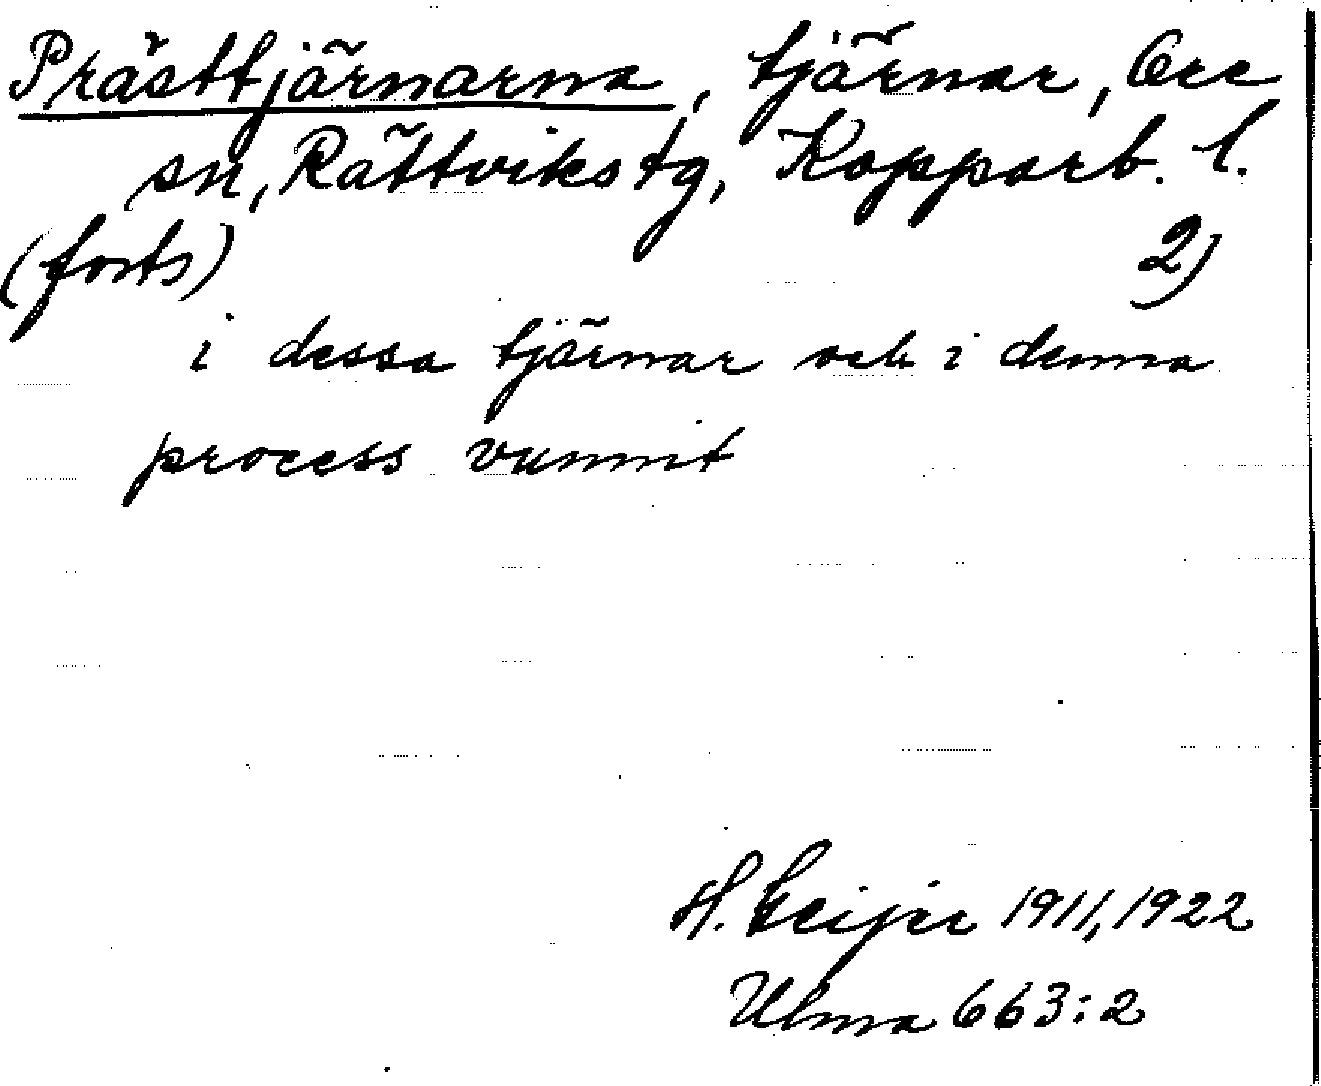 Prästtjärnarna, tjärnar, Ore
sn, Rättviks tg, Kopparb. l.
(forts) 2)
i dessa tjärnar och i denna
process vunnit
H. Geijer 1911, 1922
Ulma 663:2